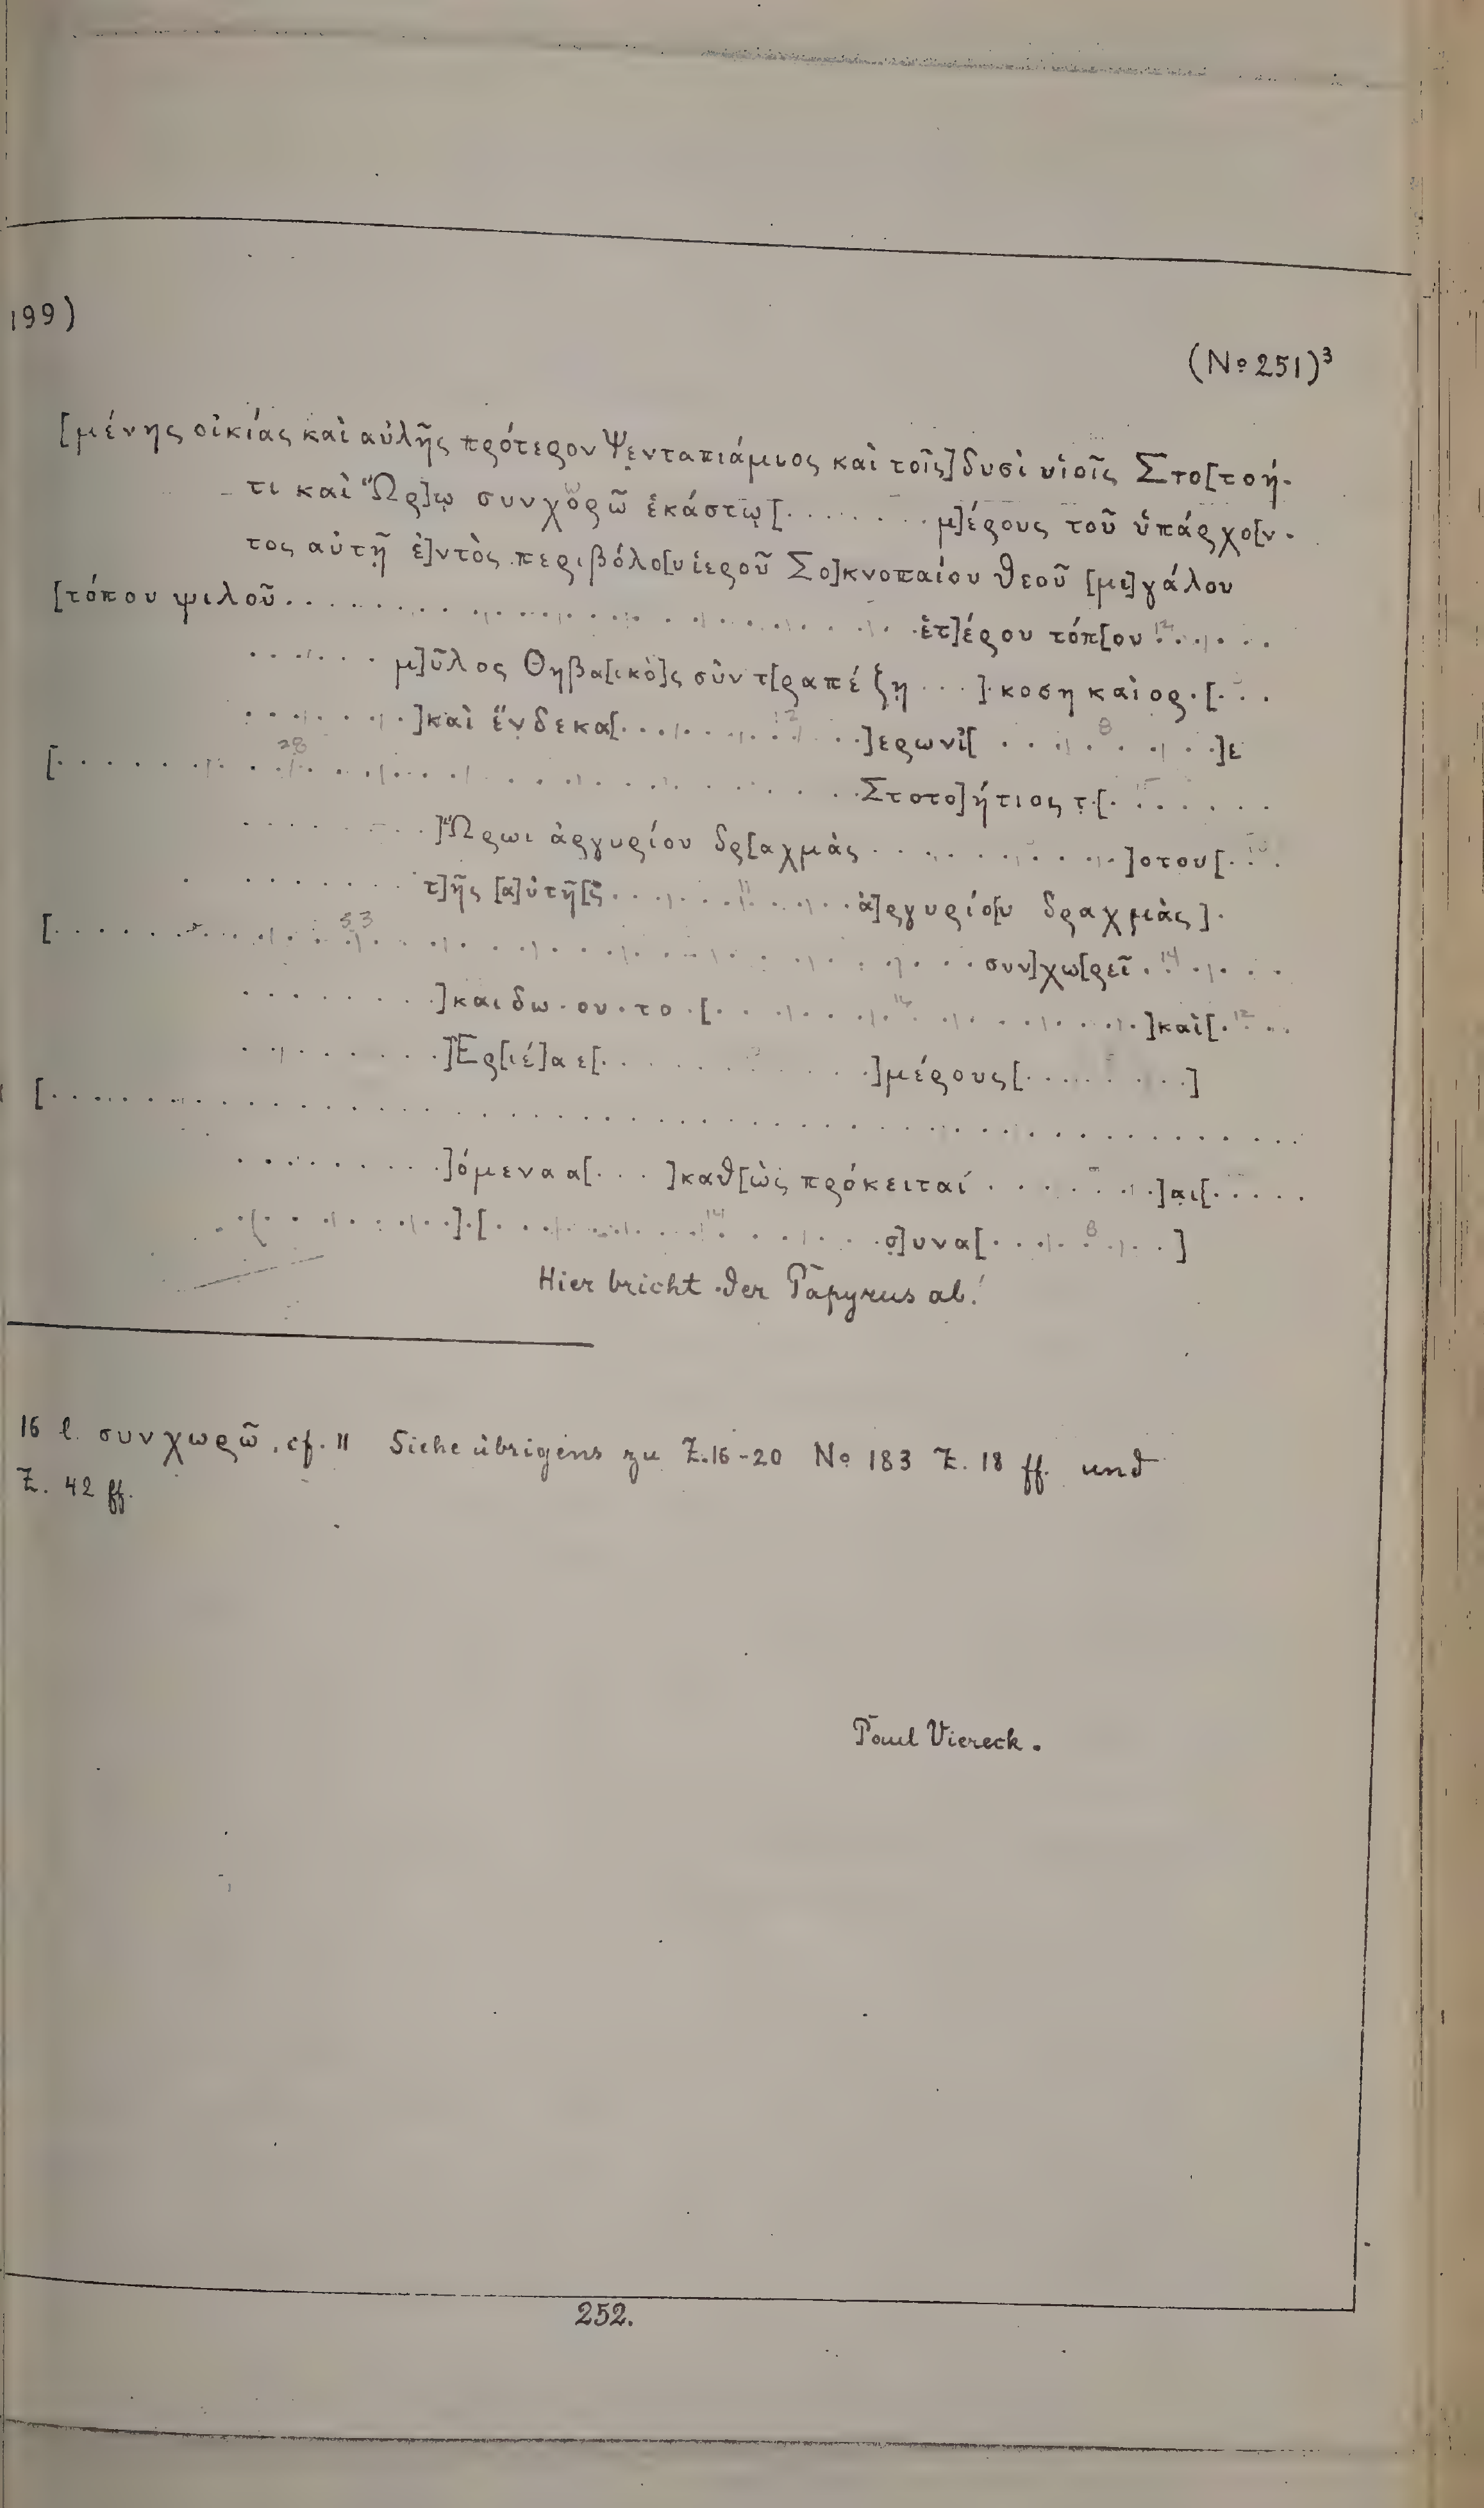 199)
(No 251)³
[μένης οἰκίας καὶ αὐλῆς πρότερον Ψενταπιάμιος καὶ τοῖς] δυσὶ υἱοῖς Στο[τοή-
τι καὶ Ὥρ]ῳ συνχορῶ ἑκάστῳ [. . . . . . . . μ]έρους τοῦ ὑπάρχο[ν-
τος αὐτῇ ἐ]ντὸς περιβόλο[υ ἱεροῦ Σο]κνοπαίου θεοῦ [με]γάλου
[τόπου ψιλοῦ . . . . . . . . . . . . . . . . . . . . ἑτ]έρου τόπ[ου 12 . . . . .
. . . . . . μ]ῦλος Θηβα[ικὸ]ς σὺν τ[ραπέζῃ . . . ] . κοση καὶ ορ . [. . .
. . . . . . . ]καὶ ἕνδεκα[. . . . . . 12 . . . . ]ερωνἰ[ . . . . 8 . . . . ]ε
[. . . . . . . . 28 . . . . . . . . . . . . . Στοτο]ήτιος τ . [. . . . . . .
. . . . . . . . ]Ὥρωι ἀργυρίου δρ[αχμὰς . . . . . . . . . . ]οτου[. . .
. . . . . . . τ]ῆς [α]ὐτῆ[ς . . . . 11 . . . . ἀ]ργυρίο[υ δραχμὰς] .
[. . . . . . . . . 53 . . . . . . . . . . . . . . . . συν]χω[ρεῖ . 14 . . . .
. . . . . . . . ]και δω . ου . το . [. . . . . 16 . . . . . . ]καὶ[ . 12 . .
. . . . . . . ]Ἐρ[ιέ]α ε[. . . . . . . . . . ]μέρους[. . . . . . . . ]
[. . . . . . . . . . . . . . . . . . . . . . . . . . . . . . . . . .
. . . . . . . . ]όμενα α[. . . ]καθ[ὼς πρόκειται . . . . . . . ]αι[. . . . .
. . . . . . . . . ] . [. . . . . . . 14 . . . . . σ]υνα[. . . . 8 . . . ]
Hier bricht der Papyrus ab.
16 l. συνχωρῶ, cf. 11 Siehe übrigens zu Z. 16-20 No 183 Z. 18 ff. und
Z. 42 ff.
Paul Viereck.
252.